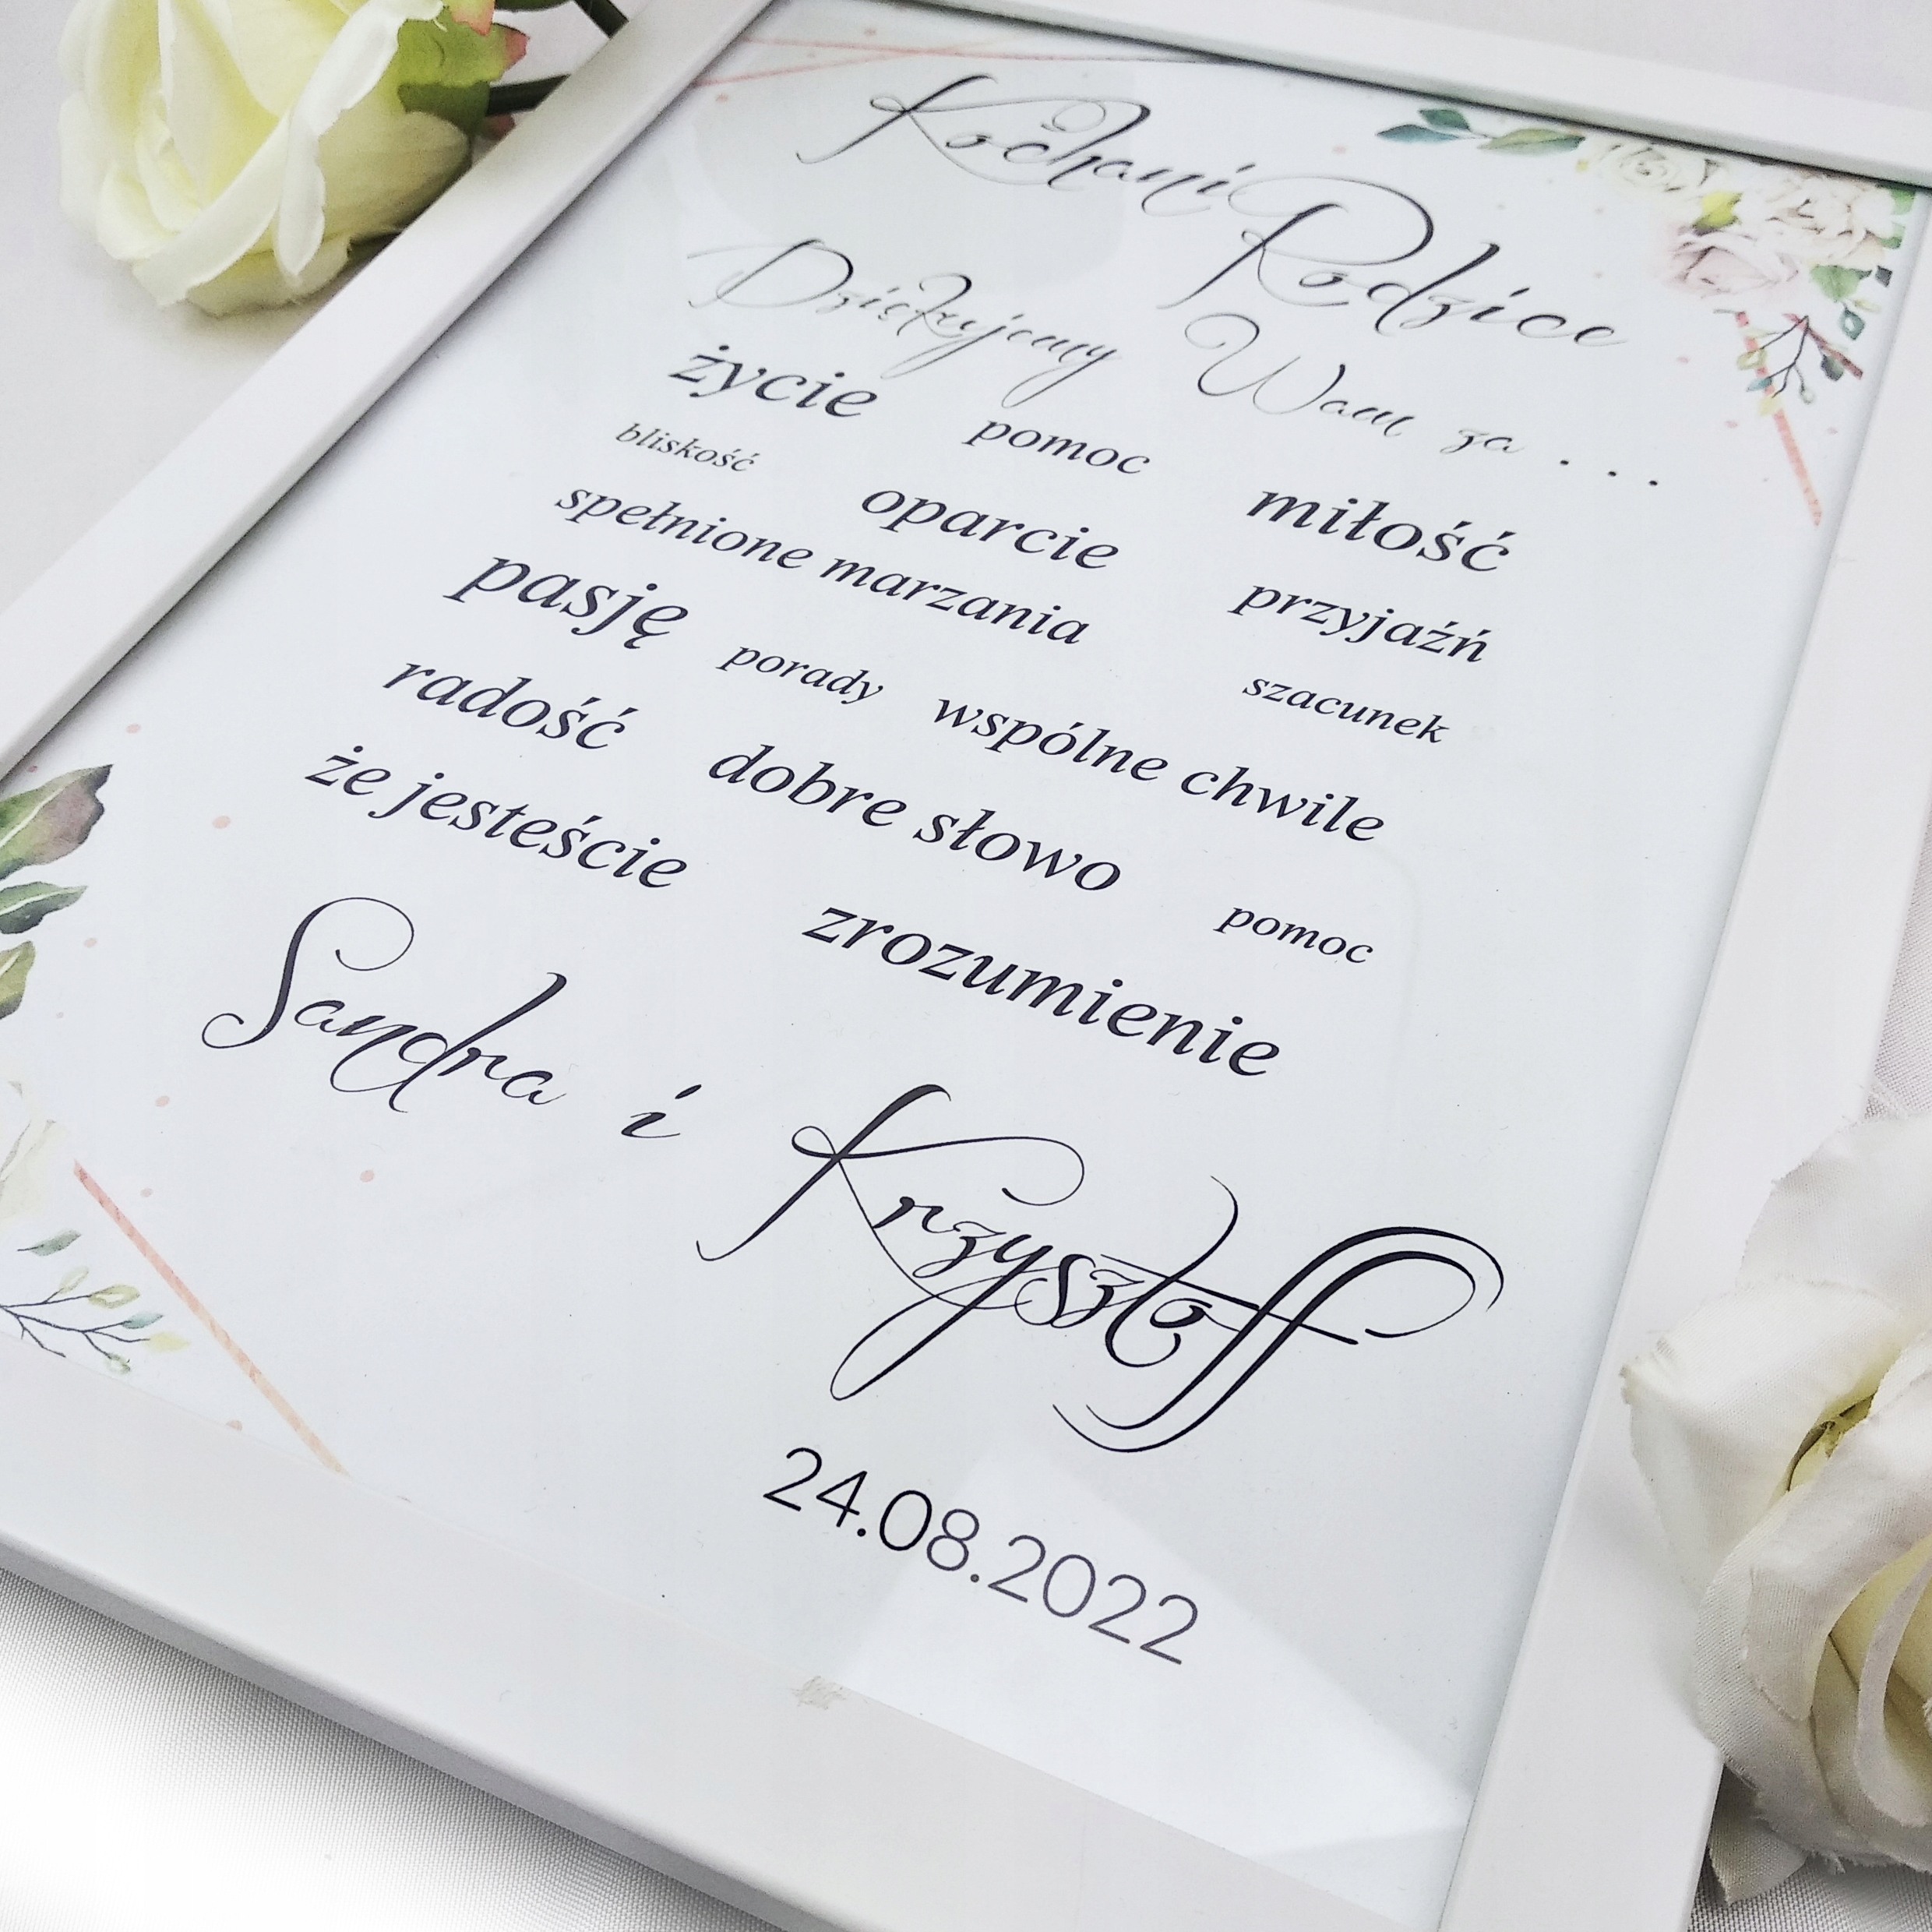 Kochani Rodzice
Dziękujemy Wam za ...
życie pomoc miłość
bliskość oparcie przyjaźń
spełnione marzania szacunek
pasję porady wspólne chwile
radość dobre słowo pomoc
że jesteście zrozumienie
Sandra i Krzysztoff
24.08.2022